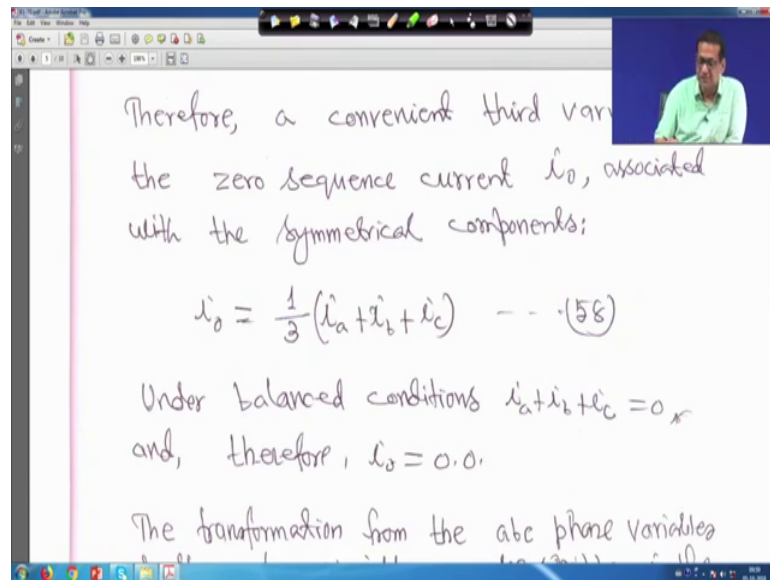 File Edit View Window Help
Create
Therefore, a convenient third
the zero sequence current i₀, associated
with the symmetrical components:
i₀ = 1/3 (i_a + i_b + i_c) - - - · (58)
Under balanced conditions i_a + i_b + i_c = 0,
and, therefore, i₀ = 0.0.
The transformation from the abc phase variables